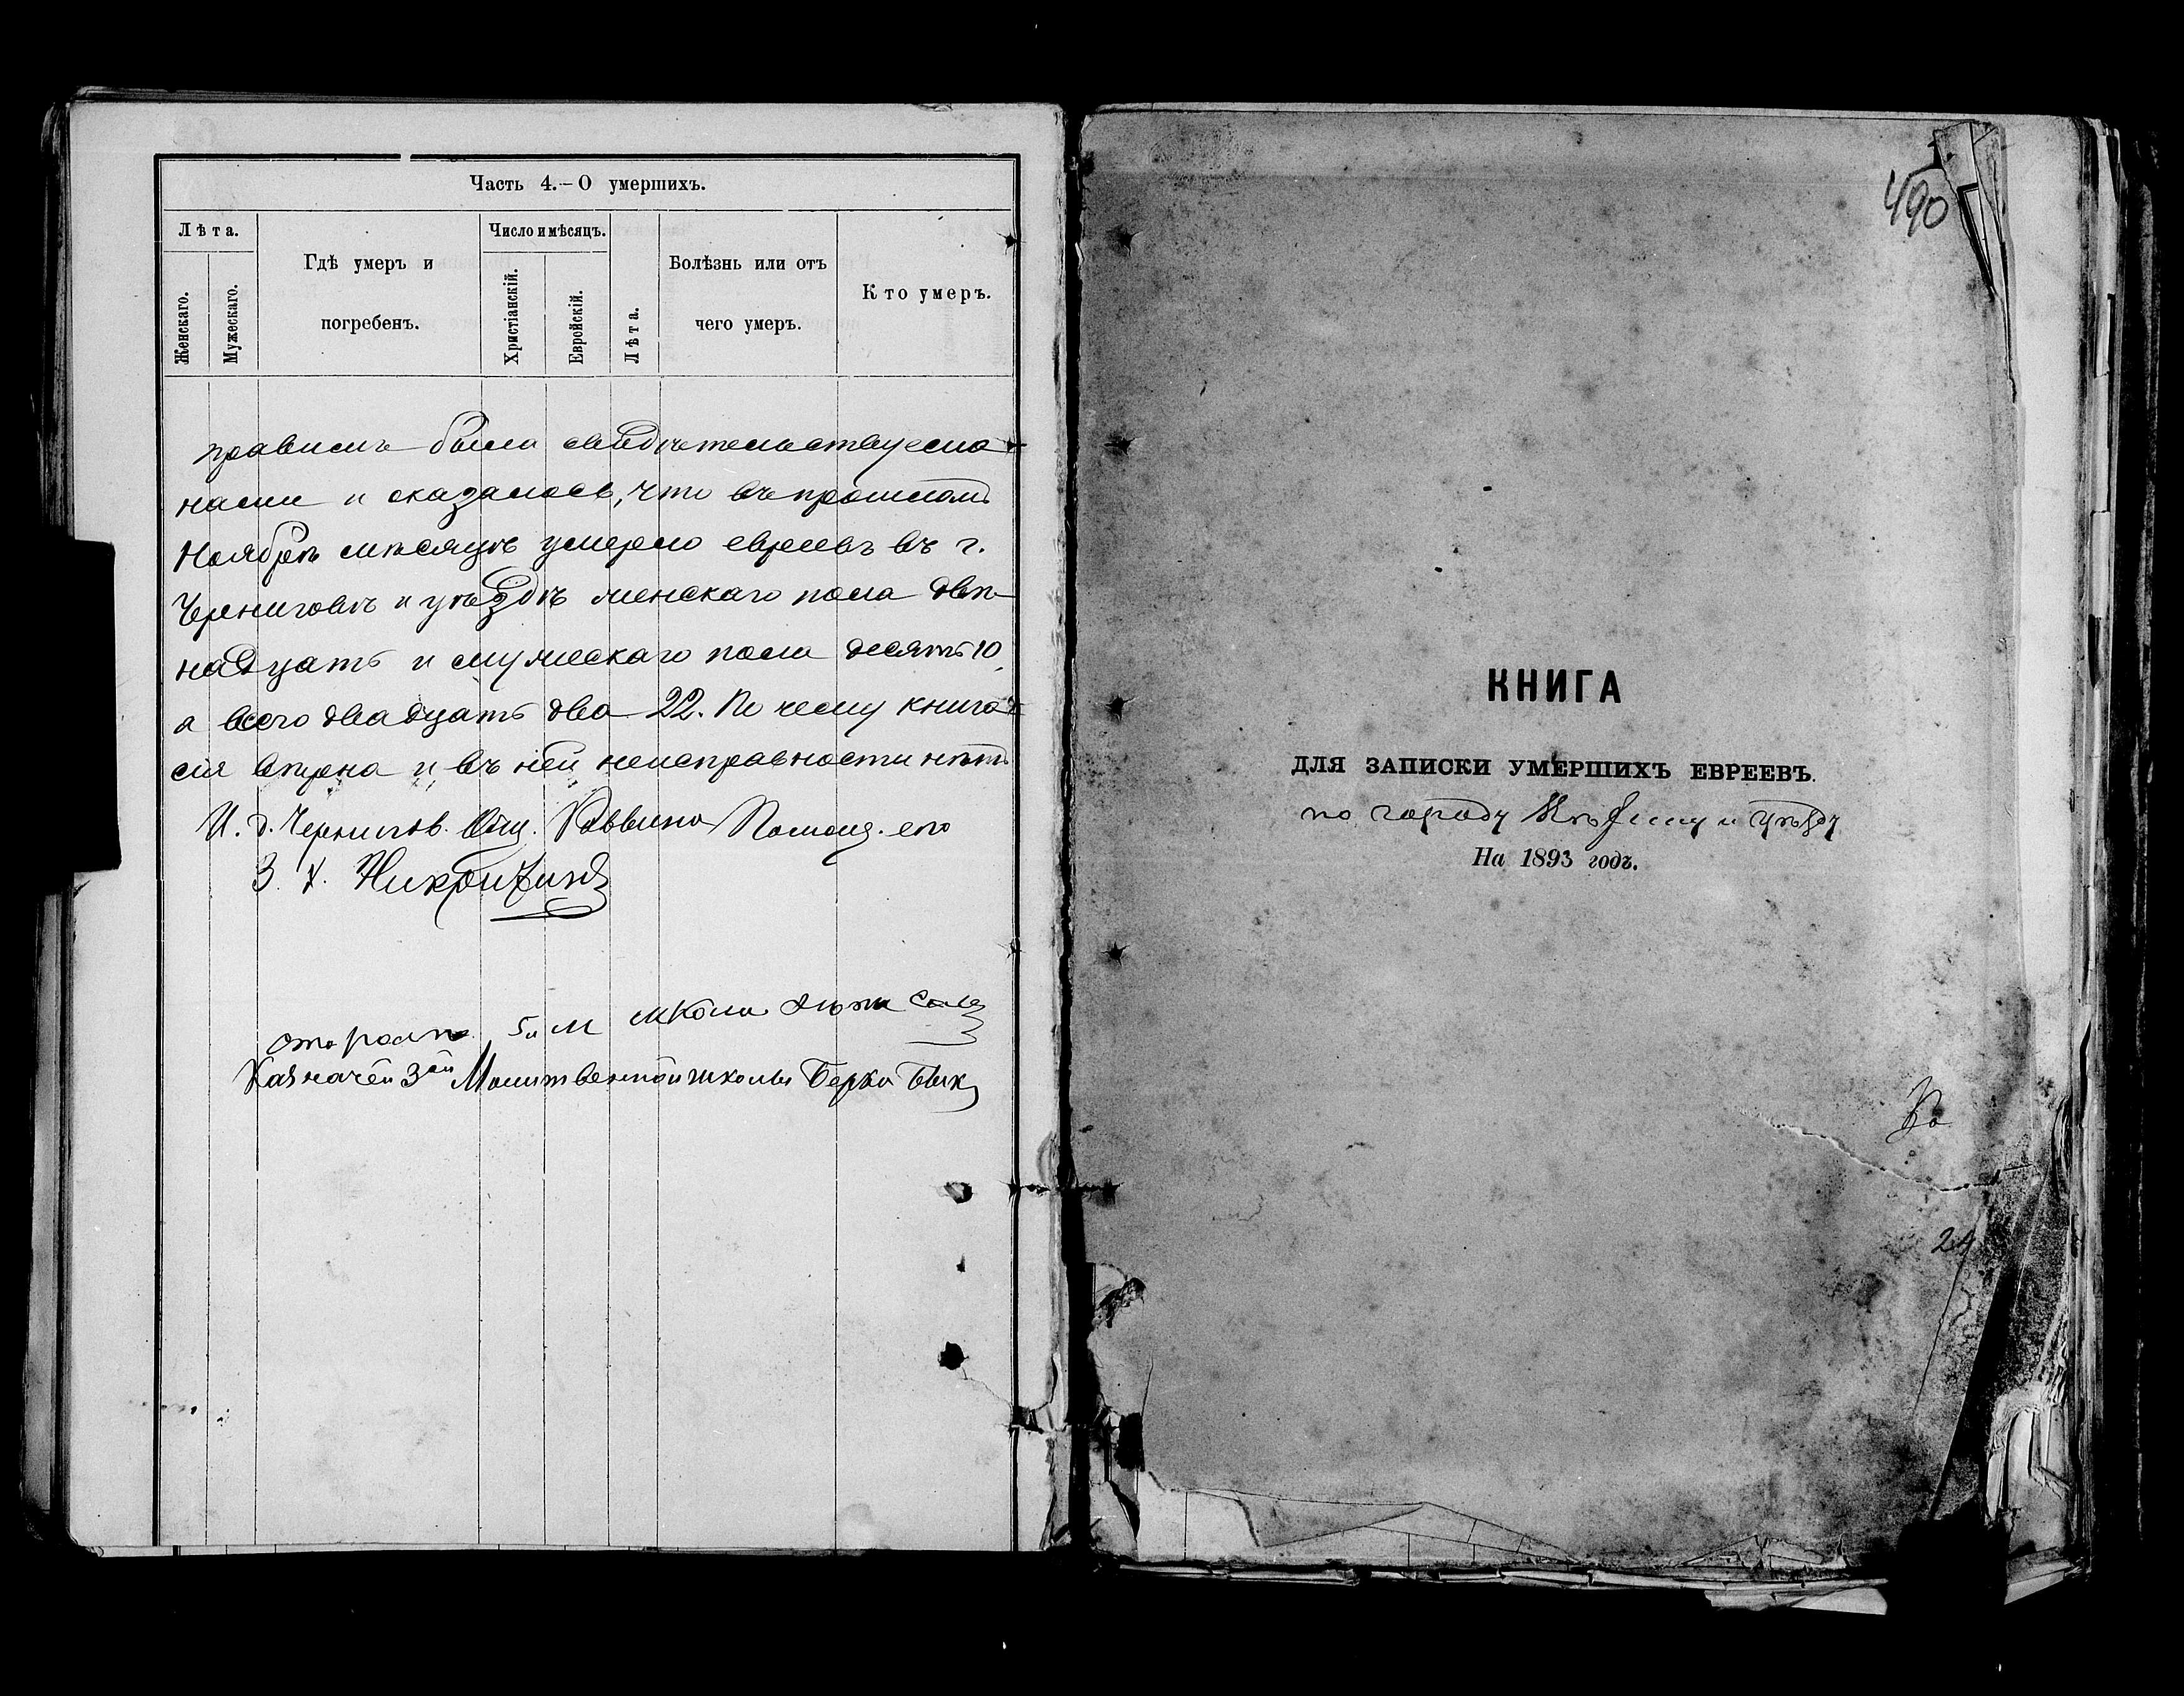 Часть 4.—О умершихъ.
Лѣта.
Женскаго.
Мужескаго.
Гдѣ умеръ и
погребенъ.
Число и мѣсяцъ.
Христіанскій.
Еврейскій.
Лѣта.
Болѣзнь или отъ
чего умеръ.
Кто умеръ.
правилъ была свидѣтельствуема
нами и оказалось, что въ прошломъ
Ноябрѣ мѣсяцѣ умерло евреевъ въ г.
Черниговѣ и уѣздѣ женскаго пола двѣ-
надцать и мужескаго пола десять 10,
а всего двадцать два 22. По чему книга
сія вѣрна и въ ней неисправности нѣтъ
И. д. Чернигов. Общ. Раввина Помощ. его
З. Х.
староста 5й М школы
Казначей 3ей Молитвенной школы Берка Бык
490
КНИГА
ДЛЯ ЗАПИСКИ УМЕРШИХЪ ЕВРЕЕВЪ.
по городу Нѣжину и Уѣзду
На 1893 годъ.
24